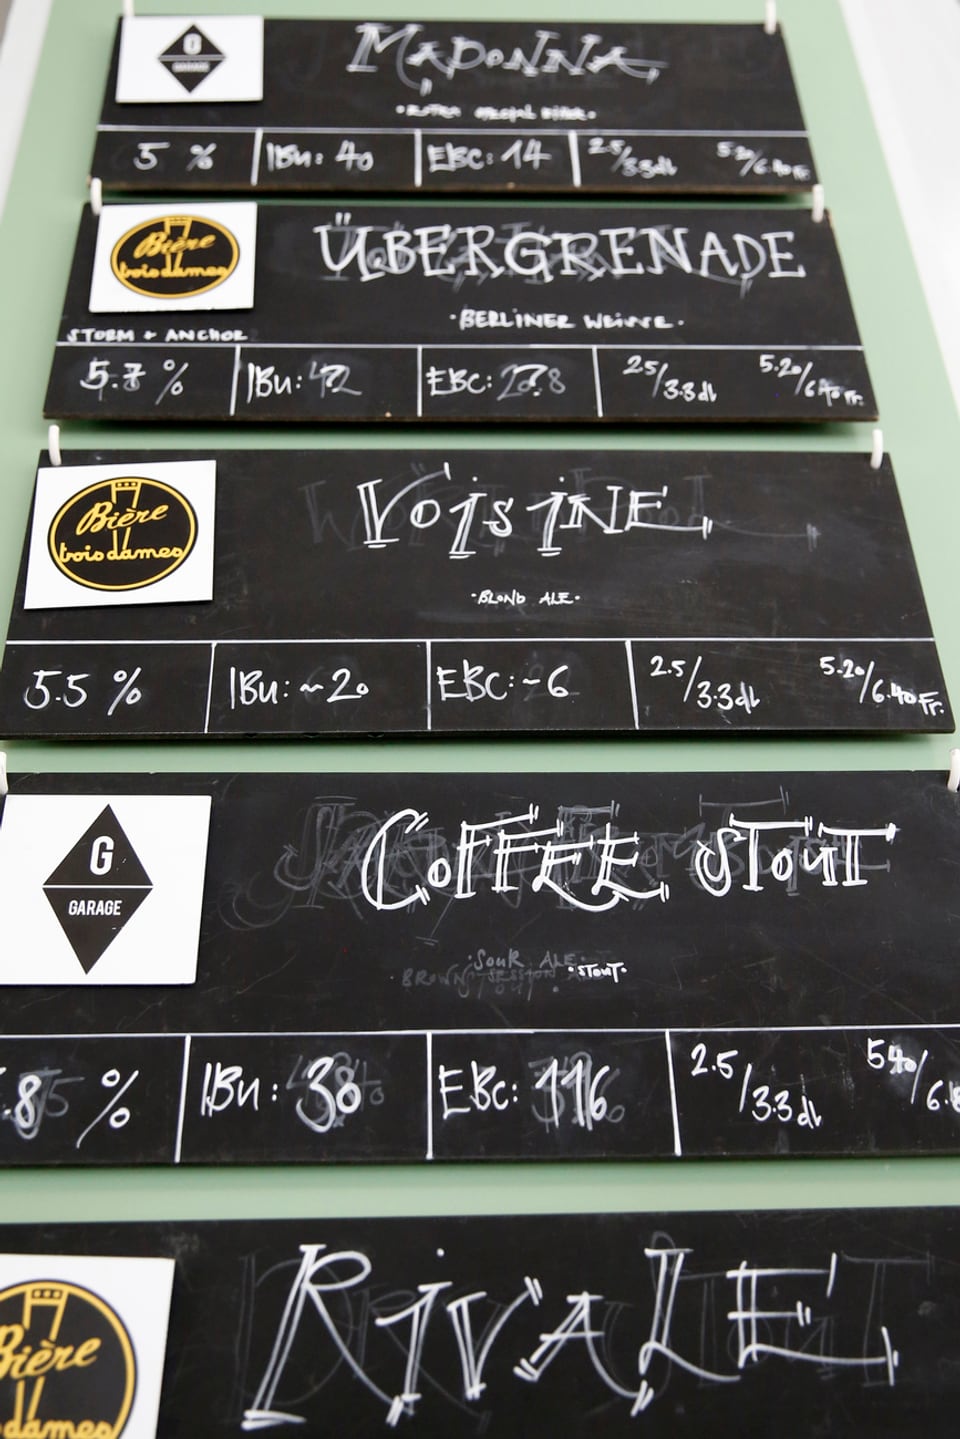 G
GARAGE
MADONNA
·EXTRA SPECIAL BITTER·
5 %
IBU: 40
EBC: 14
2.5/3.3dl
5.20/6.40 Fr.
Bière
trois dames
ÜBERGRENADE
·BERLINER WEISSE·
STORM + ANCHOR
5.7 %
IBU: ?
EBC: ?
2.5/3.3dl
5.20/6.40 Fr.
Bière
trois dames
VOISINE
·BLOND ALE·
5.5 %
IBU: ~20
EBC: ~6
2.5/3.3dl
5.20/6.40 Fr.
G
GARAGE
COFFEE STOUT
·SOUR ALE·
BROWN SESSION
·STOUT·
.8 %
IBU: 38
EBC: 116
2.5/3.3dl
5.40/6.8
Bière
dames
RIVALE